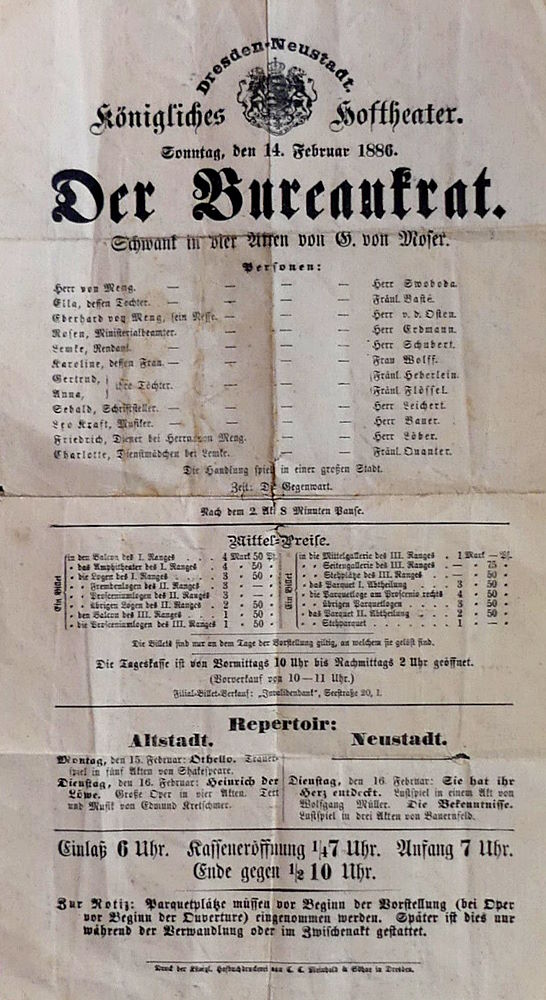 Dresden-Neustadt.
Königliches Hoftheater.
Sonntag, den 14. Februar 1886.
Der Bureaukrat.
Schwank in vier Akten von G. von Moser.
Personen:
Herr von Meng. — — — — Herr Swoboda.
Ella, dessen Tochter. — — — — Fräul. Basté.
Eberhard von Meng, sein Neffe. — — — Herr v. d. Osten.
Rosen, Ministerialbeamter. — — — Herr Erdmann.
Lemke, Rendant. — — — — Herr Schubert.
Karoline, dessen Frau. — — — — Frau Wolff.
Gertrud, } ihre Töchter. — — — — Fräul. Heberlein.
Anna, — — Fräul. Flössel.
Sebald, Schriftsteller. — — — — Herr Leichert.
Leo Kraft, Musiker. — — — — Herr Bauer.
Friedrich, Diener bei Herrn von Meng. — — Herr Löber.
Charlotte, Dienstmädchen bei Lemke. — — Fräul. Quanter.
Die Handlung spielt in einer großen Stadt.
Zeit: Die Gegenwart.
Nach dem 2. Akt 8 Minuten Pause.
Mittel-Preise.
Ein Billet
in den Balcon des I. Ranges . . . 4 Mark 50 Pf.
„ das Amphitheater des I. Ranges . 4 „ 50 „
„ die Logen des I. Ranges . . . 3 „ 50 „
„ „ Fremdenlogen des II. Ranges . 3 „ — „
„ „ Prosceniumslogen des II. Ranges 3 „ — „
„ „ übrigen Logen des II. Ranges . 2 „ 50 „
„ den Balcon des III. Ranges . . 1 „ 50 „
„ die Prosceniumslogen des III. Ranges 1 „ 50 „
Ein Billet
in die Mittelgallerie des III. Ranges . 1 Mark — Pf.
„ „ Seitengallerie des III. Ranges . — „ 75 „
„ „ Stehplätze des III. Ranges . . — „ 50 „
„ das Parquet I. Abtheilung . . 3 „ 50 „
„ die Parquetloge am Proscenio rechts 4 „ 50 „
„ „ übrigen Parquetlogen . . . 3 „ 50 „
„ das Parquet II. Abtheilung . . 2 „ 50 „
„ „ Stehparquet . . . . 1 „ — „
Die Billets sind nur an dem Tage der Vorstellung giltig, an welchem sie gelöst sind.
Die Tageskasse ist von Vormittags 10 Uhr bis Nachmittags 2 Uhr geöffnet.
(Vorverkauf von 10—11 Uhr.)
Filial-Billet-Verkauf: „Invalidendank“, Seestraße 20, I.
Repertoir:
Altstadt.
Montag, den 15. Februar: Othello. Trauer-
spiel in fünf Akten von Shakespeare.
Dienstag, den 16. Februar: Heinrich der
Löwe. Große Oper in vier Akten. Text
und Musik von Edmund Kretschmer.
Neustadt.
Dienstag, den 16. Februar: Sie hat ihr
Herz entdeckt. Lustspiel in einem Akt von
Wolfgang Müller. Die Bekenntnisse.
Lustspiel in drei Akten von Bauernfeld.
Einlaß 6 Uhr. Kasseneröffnung 1/47 Uhr. Anfang 7 Uhr.
Ende gegen 1/2 10 Uhr.
Zur Notiz: Parquetplätze müssen vor Beginn der Vorstellung (bei Oper
vor Beginn der Ouverture) eingenommen werden. Später ist dies nur
während der Verwandlung oder im Zwischenakt gestattet.
Druck der Königl. Hofbuchdruckerei von C. C. Meinhold & Söhne in Dresden.